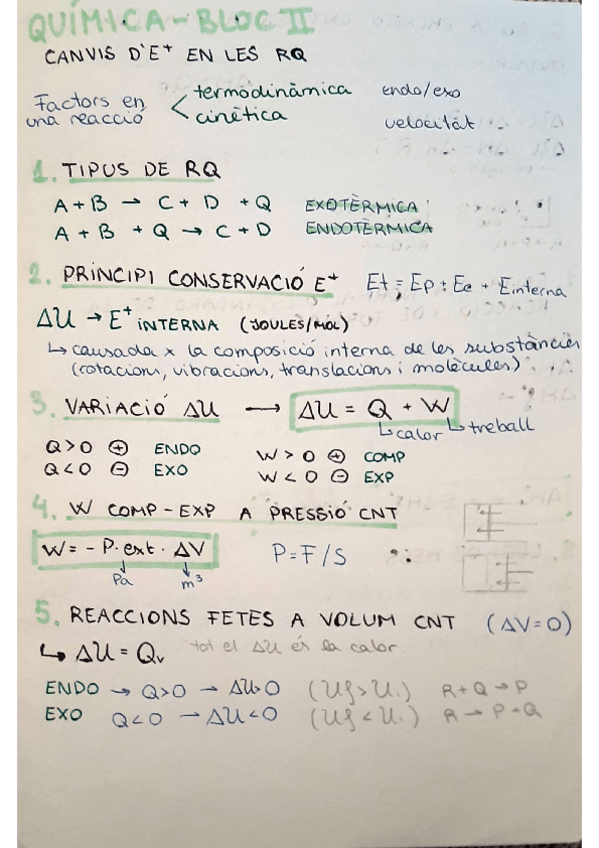 QUÍMICA - BLOC II
CANVIS D'E⁺ EN LES RQ
Factors en una reacció < termodinàmica endo/exo
cinètica velocitat
1. TIPUS DE RQ
A + B → C + D + Q EXOTÈRMICA
A + B + Q → C + D ENDOTÈRMICA
2. PRINCIPI CONSERVACIÓ E⁺ Et = Ep + Ec + Einterna
ΔU → E⁺ INTERNA (JOULES/MOL)
↳ causada x la composició interna de les substàncies
(rotacions, vibracions, translacions i molècules)
3. VARIACIÓ ΔU → ΔU = Q + W
↳ calor ↳ treball
Q > 0 ⊕ ENDO W > 0 ⊕ COMP
Q < 0 ⊖ EXO W < 0 ⊖ EXP
4. W COMP - EXP A PRESSIÓ CNT
W = - P. ext · ΔV P = F/S
Pa m³
5. REACCIONS FETES A VOLUM CNT (ΔV = 0)
↳ ΔU = Qv tot el ΔU és la calor.
ENDO → Q > 0 → ΔU > 0 (Uf > Ui) R + Q → P
EXO Q < 0 → ΔU < 0 (Uf < Ui) R → P + Q